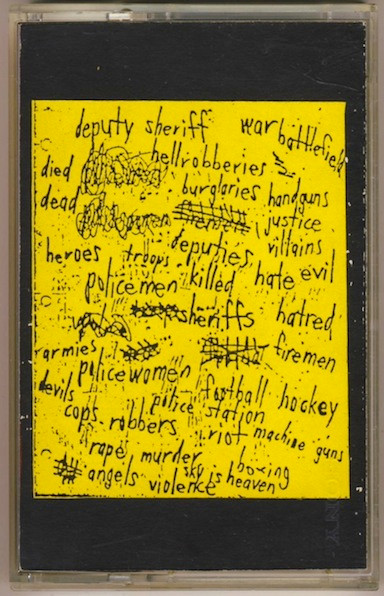 deputy sheriff war battlefield
died hell robberies
burglaries handguns
dead justice
deputies villains
heroes troops
policemen killed hate evil
sheriffs hatred
armies firemen
policewomen
devils football hockey
cops robbers police station
riot machine guns
rape murder boxing
angels violence sky is heaven